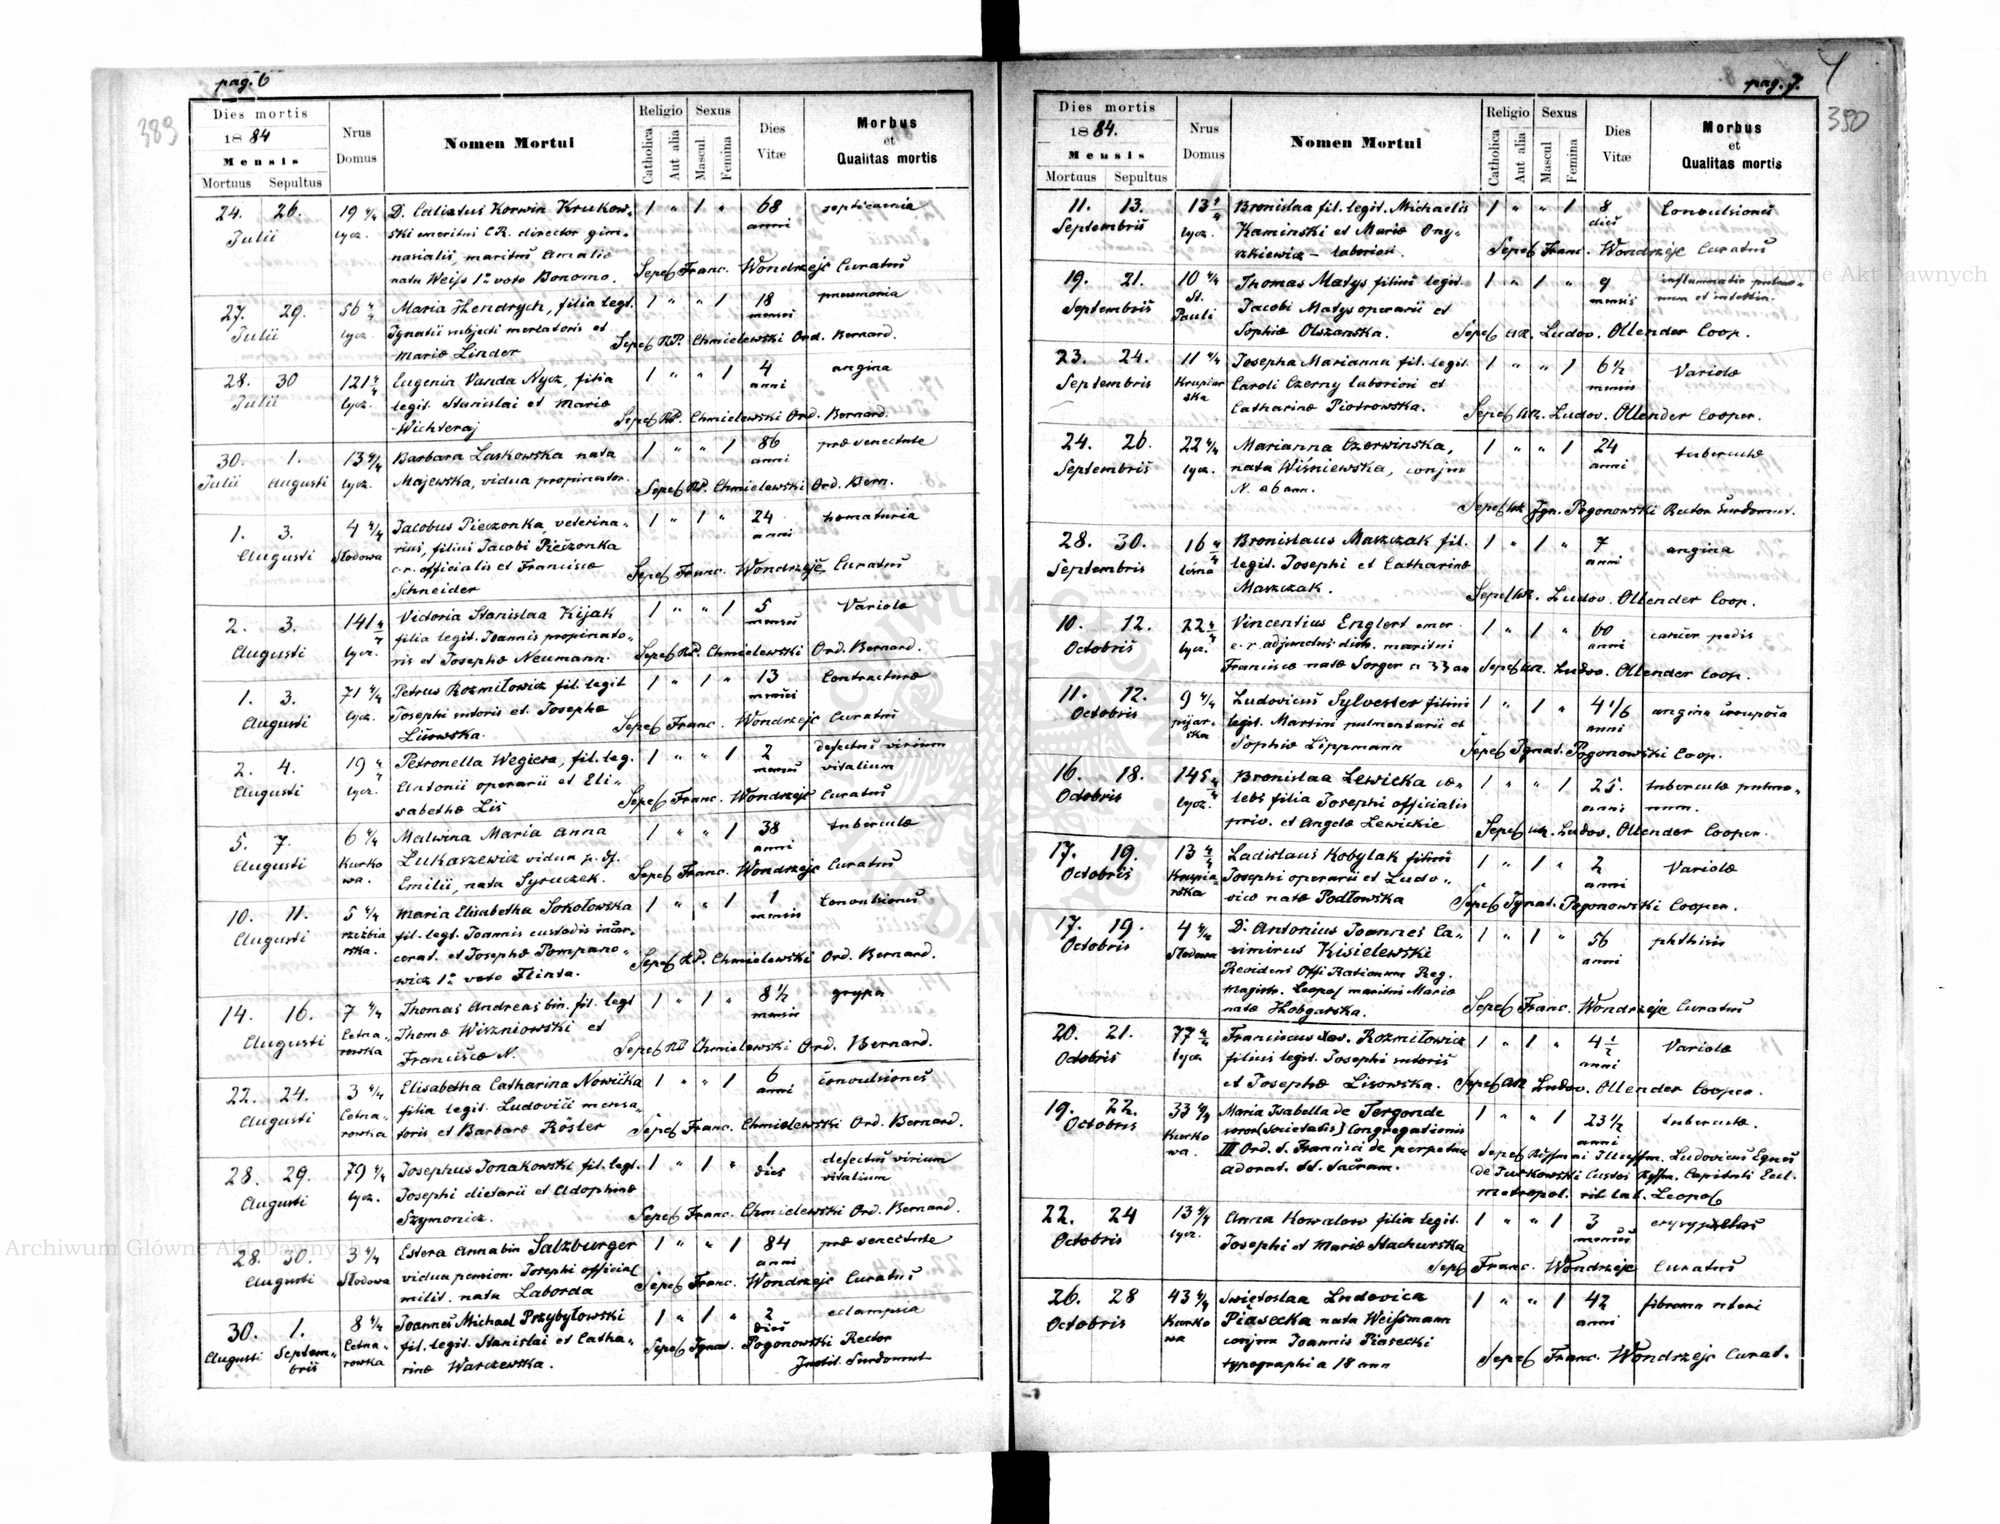 pag. 6
389
Dies mortis
1884
Mensis
Mortuus Sepultus
Nrus Domus
Nomen Mortui
Religio
Catholica
Aut alia
Sexus
Mascul
Femina
Dies Vitæ
Morbus et Qualitas mortis
24. 26. 19 4/4 D. Calixtus Korwin Krukow- 1 " 1 " 68 septicaemia
Julii lycz. ski emeritus C.R. director gim- anni
nasialis, maritus Amaliæ
natæ Weiss 1º voto Bonomo. Sepel Franc. Wondrzejc Curatus
27. 29. 56 4/4 Maria Hendrych, filia legt. 1 " " 1 18 pneumonia
Julii lycz. Ignatii subjecti mercatoris et menses
Mariæ Linder Sepel RP. Chmielewski Ord. Bernard.
28. 30 121 4/4 Eugenia Vanda Nycz, filia 1 " " 1 4 angina
Julii lycz. legit. Stanislai et Mariæ anni
Wichteraj Sepel RP. Chmielewski Ord. Bernard.
30. 1. 13 4/4 Barbara Laskowska nata 1 " " 1 86 præ senectute
Julii Augusti lycz. Majewska, vidua propinator. anni
Sepel RP. Chmielewski Ord. Bern.
1. 3. 4 4/4 Jacobus Pieczonka, veterina- 1 " 1 " 24 hematuria
Augusti Słodowa rius, filius Jacobi Pieczonka anni
c.r. officialis et Franciscæ Sepel Franc. Wondrzejc Curatus
Schneider
2. 3. 141 4/4 Victoria Stanislaa Kijak 1 " " 1 5 Variolæ
Augusti lycz. filia legit. Joannis propinato- menses
ris et Josephæ Neumann. Sepel RP. Chmielewski Ord. Bernard.
1. 3. 71 4/4 Petrus Rozmiłowicz fil. legit 1 " 1 " 13 Contracturæ
Augusti lycz. Josephi sutoris et Josephæ menses
Lisowska. Sepel Franc. Wondrzejc Curatus
2. 4. 19 4/4 Petronella Wegiera, fil. leg. 1 " " 1 2 defectus virium
Augusti lycz. Antonii operarii et Eli- menses vitalium
sabethæ Lis Sepel Franc. Wondrzejc Curatus
5. 7. 6 4/4 Malwina Maria Anna 1 " " 1 38 tuberculæ
Augusti Kurko Lukaszewicz vidua p. df. anni
wa. Emilii, nata Syruczek. Sepel Franc. Wondrzejc Curatus
10. 11. 5 4/4 Maria Elisabetha Sokołowska 1 " " 1 1 Convulsiones
Augusti rzeźbia fil. legt. Joannis custodis incar- mensis
rska. cerat. et Josephæ Pompano- Sepel RP. Chmielewski Ord. Bernard.
wicz 1º voto Flinta.
14. 16. 7 4/4 Thomas Andreas bin. fil. legt 1 " 1 " 8 1/2 grypa
Augusti Cetna- Thomæ Wiszniowski et mensis
rowska Franciscæ N. Sepel RP Chmielewski Ord. Bernard.
22. 24. 3 4/4 Elisabetha Catharina Nowicka 1 " " 1 6 convulsiones
Augusti Cetna- filia legit. Ludovici mensa- anni
rowska toris et Barbaræ Röster Sepel Franc. Chmielewski Ord. Bernard.
28. 29. 79 4/4 Josephus Jonakowski fil. legt. 1 " 1 " 1 defectus virium
Augusti lycz. Josephi dietarii et Adophinæ dies vitalium
Szymonicz. Sepel Franc. Chmielewski Ord. Bernard.
28. 30. 3 4/4 Estera Anna bin Salzburger 1 " " 1 84 præ senectute
Augusti Słodowa vidua pension. Josephi official anni
milit. nata Laborda Sepel Franc. Wondrzejc Curatus
30. 1. 8 4/4 Joannes Michael Przybyłowski 1 " 1 " 2 eclampsia
Augusti Septem- fil. legit. Stanislai et Catha- dies
bris Cetna- rowska rinæ Warczewska. Sepel Ignat. Pogonowski Rector
Instit. Surdomut
pag. 7.
390
Dies mortis
1884.
Mensis
Mortuus Sepultus
Nrus Domus
Nomen Mortui
Religio
Catholica
Aut alia
Sexus
Mascul
Femina
Dies Vitæ
Morbus et Qualitas mortis
11. 13. 13 1/4 Bronislaa fil. legit. Michaelis 1 " " 1 8 Convulsiones
Septembris lycz. Kaminski et Mariæ Ony- dies
szkiewicz - laboriosi. Sepel Franc. Wondrzejc Curatus
19. 21. 10 4/4 Thomas Matys filius legit. 1 " 1 " 9 inflammatio pulmo-
Septembris St. Jacobi Matys operarii et mensis num et intestin.
Pauli Sophiæ Olszanska. Sepel Ludov. Ollender Coop.
23. 24. 11 4/4 Josepha Marianna fil. legit. 1 " " 1 6 1/2 Variolæ
Septembris Krupiar Caroli Czerny laboriosi et mensis
ska Catharinæ Piotrowska. Sepel Ludov. Ollender Cooper.
24. 26. 22 4/4 Marianna Czerwinska, 1 " " 1 24 tuberculæ
Septembris lycz. nata Wiśniewska, conjux anni
N. a 6 ann. Sepel Ign. Pogonowski Rector Surdomut.
28. 30. 16 4/4 Bronislaus Maszczak fil. 1 " 1 " 7 angina
Septembris leśna legit. Josephi et Catharinæ anni
Maszczak. Sepel Ludov. Ollender Coop.
10. 12. 22 4/4 Vincentius Englert emer. 1 " 1 " 60 cancer pedis
Octobris lycz. c.r. adjunctus maritus anni
Franciscæ natæ Sorger a 33 an Sepel Ludov. Ollender Coop.
11. 12. 9 4/4 Ludovicus Sylvester filius 1 " 1 " 4 1/6 angina crouposa
Octobris pijar- legit. Martini pulmentarii et anni
ska Sophiæ Lippmann Sepel Ignat. Pogonowski Coop.
16. 18. 145 4/4 Bronislaa Lewicka cæ- 1 " " 1 25. tuberculæ pulmo-
Octobris lycz. lebs filia Josephi officialis anni num.
priv. et Angelæ Lewickie Sepel Ludov. Ollender Cooper.
17. 19. 13 4/4 Ladislaus Kobylak filius 1 " 1 " 2 Variolæ
Octobris Krupia- Josephi operarii et Ludo- anni
rska vicæ natæ Podłowska Sepel Ignat. Pogonowski Cooper.
17. 19. 4 4/4 D. Antonius Joannes Ca- 1 " 1 " 56 phthisis
Octobris Słodowa simirus Kisielewski anni
Revidens Offi Rationum Reg.
Magistr. Leopol maritus Mariæ
natæ Hobgarska. Sepel Franc. Wondrzejc Curatus
20. 21. 77 4/4 Franciscus Xav. Rozmiłowicz 1 " 1 " 4 1/2 Variolæ
Octobris lycz filius legit. Josephi sutoris anni
et Josephæ Lisowska. Sepel Ludov. Ollender Cooper.
19. 22. 33 4/4 Maria Isabella de Tergonde 1 " " 1 23 1/2 tuberculæ.
Octobris Kurko soror (societatis) Congregationis anni
wa. III Ord. S. Francisci de perpetua Sepel Rssmi Illussm. Ludovicus Egnes
adorat. SS. Sacram. de Jurkowski Custos Rssm. Capituli Eccl.
metropol. rit lat. Leopol
22. 24 13 4/4 Anna Kowalow filia legit. 1 " " 1 3 erysypelas
Octobris lycz. Josephi et Mariæ Stachurska menses
Sepel Franc. Wondrzejc Curatus
26. 28 43 4/4 Swiętoslaa Ludovica 1 " " 1 42 fibroma uteri
Octobris Kurko Piasecka nata Weissmann anni
wa conjux Joannis Piasecki
typographi a 18 ann Sepel Franc. Wondrzejc Curat.
Archiwum Główne Akt Dawnych
Archiwum Główne Akt Dawnych